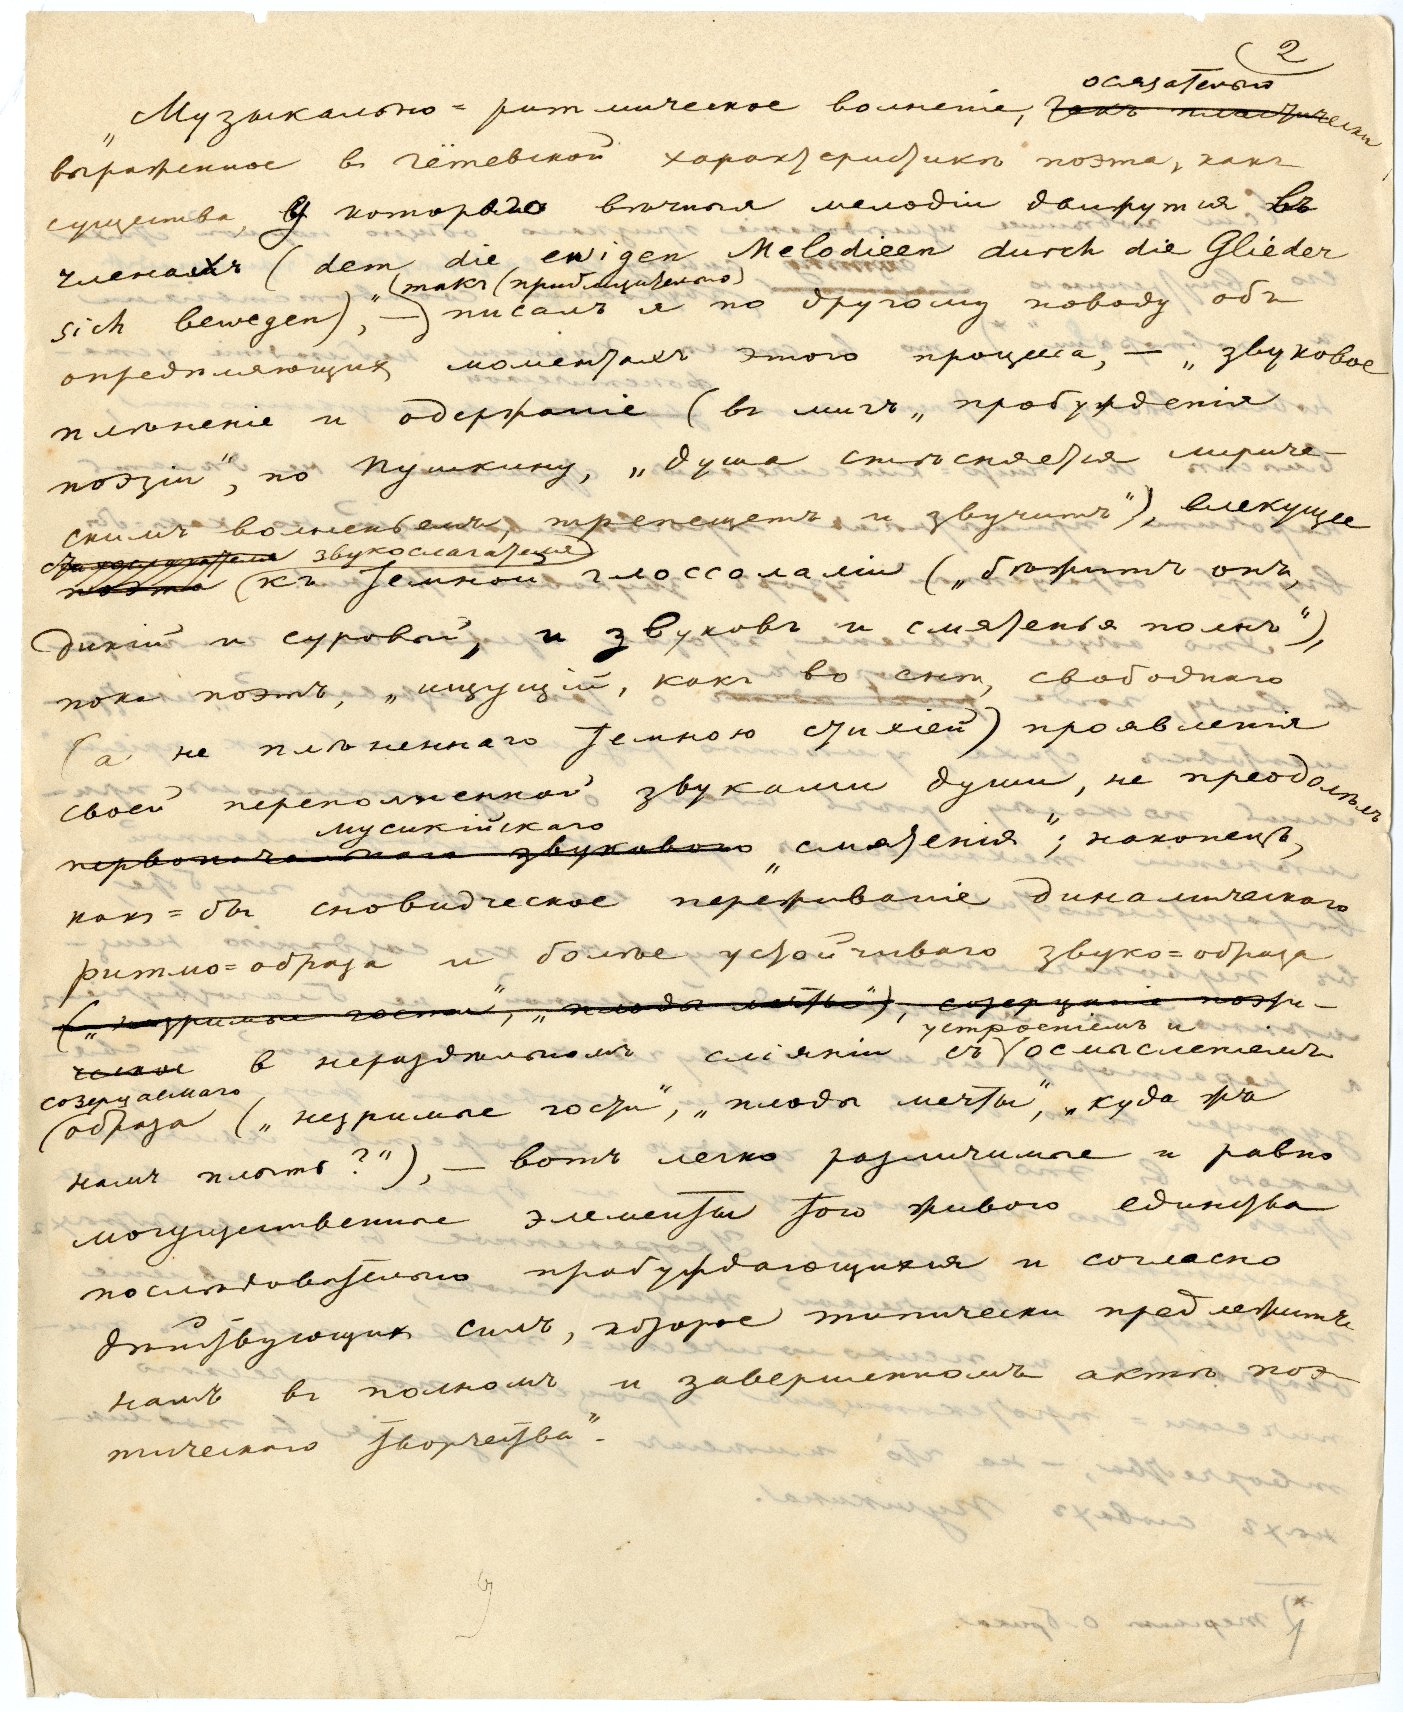 2
осязательно
„Музыкально=ритмическое волненіе, такъ пластически
выраженное въ гётевской характеристикѣ поэта, какъ
существа, у котораго вѣчныя мелодіи движутся въ
членахъ (dem die ewigen Melodieen durch die Glieder
(такъ (приблизительно)
sich bewegen),"—) писалъ я по другому поводу объ
опредѣляющихъ моментахъ этого процесса, — „звуковое
плѣненіе и одержаніе (въ мигъ „пробужденія
поэзіи", по Пушкину, „душа стѣсняется лириче-
скимъ волненьемъ, трепещетъ и звучитъ"), влекущее
звукослагателя
поэта (къ темной глоссолаліи („бѣжитъ онъ,
дикій и суровый, и звуковъ и смятенья полнъ"),
пока поэтъ, „ищущій, какъ во снѣ, свободнаго
(а не плѣненнаго темною стихіей) проявленія
своей переполненной звуками души, не преодолѣлъ
мусикійскаго
первоначальнаго звукового „смятенія"; наконецъ,
какъ=бы сновидческое переживаніе динамическаго
ритмо=образа и болѣе устойчиваго звуко=образа
(„незримые гости", „плоды мечты"), созерцаніе поэти-
устроеніемъ и
ческое въ нераздѣльномъ сліяніи съ осмысленіемъ
созерцаемаго
(образа („незримые гости", „плоды мечты", „куда жъ
намъ плыть?"), — вотъ легко различимые и равно
могущественные элементы того живого единства
послѣдовательно пробуждающихся и согласно
дѣйствующихъ силъ, которое типически предлежитъ
намъ въ полномъ и завершенномъ актѣ поэ-
тическаго творчества".